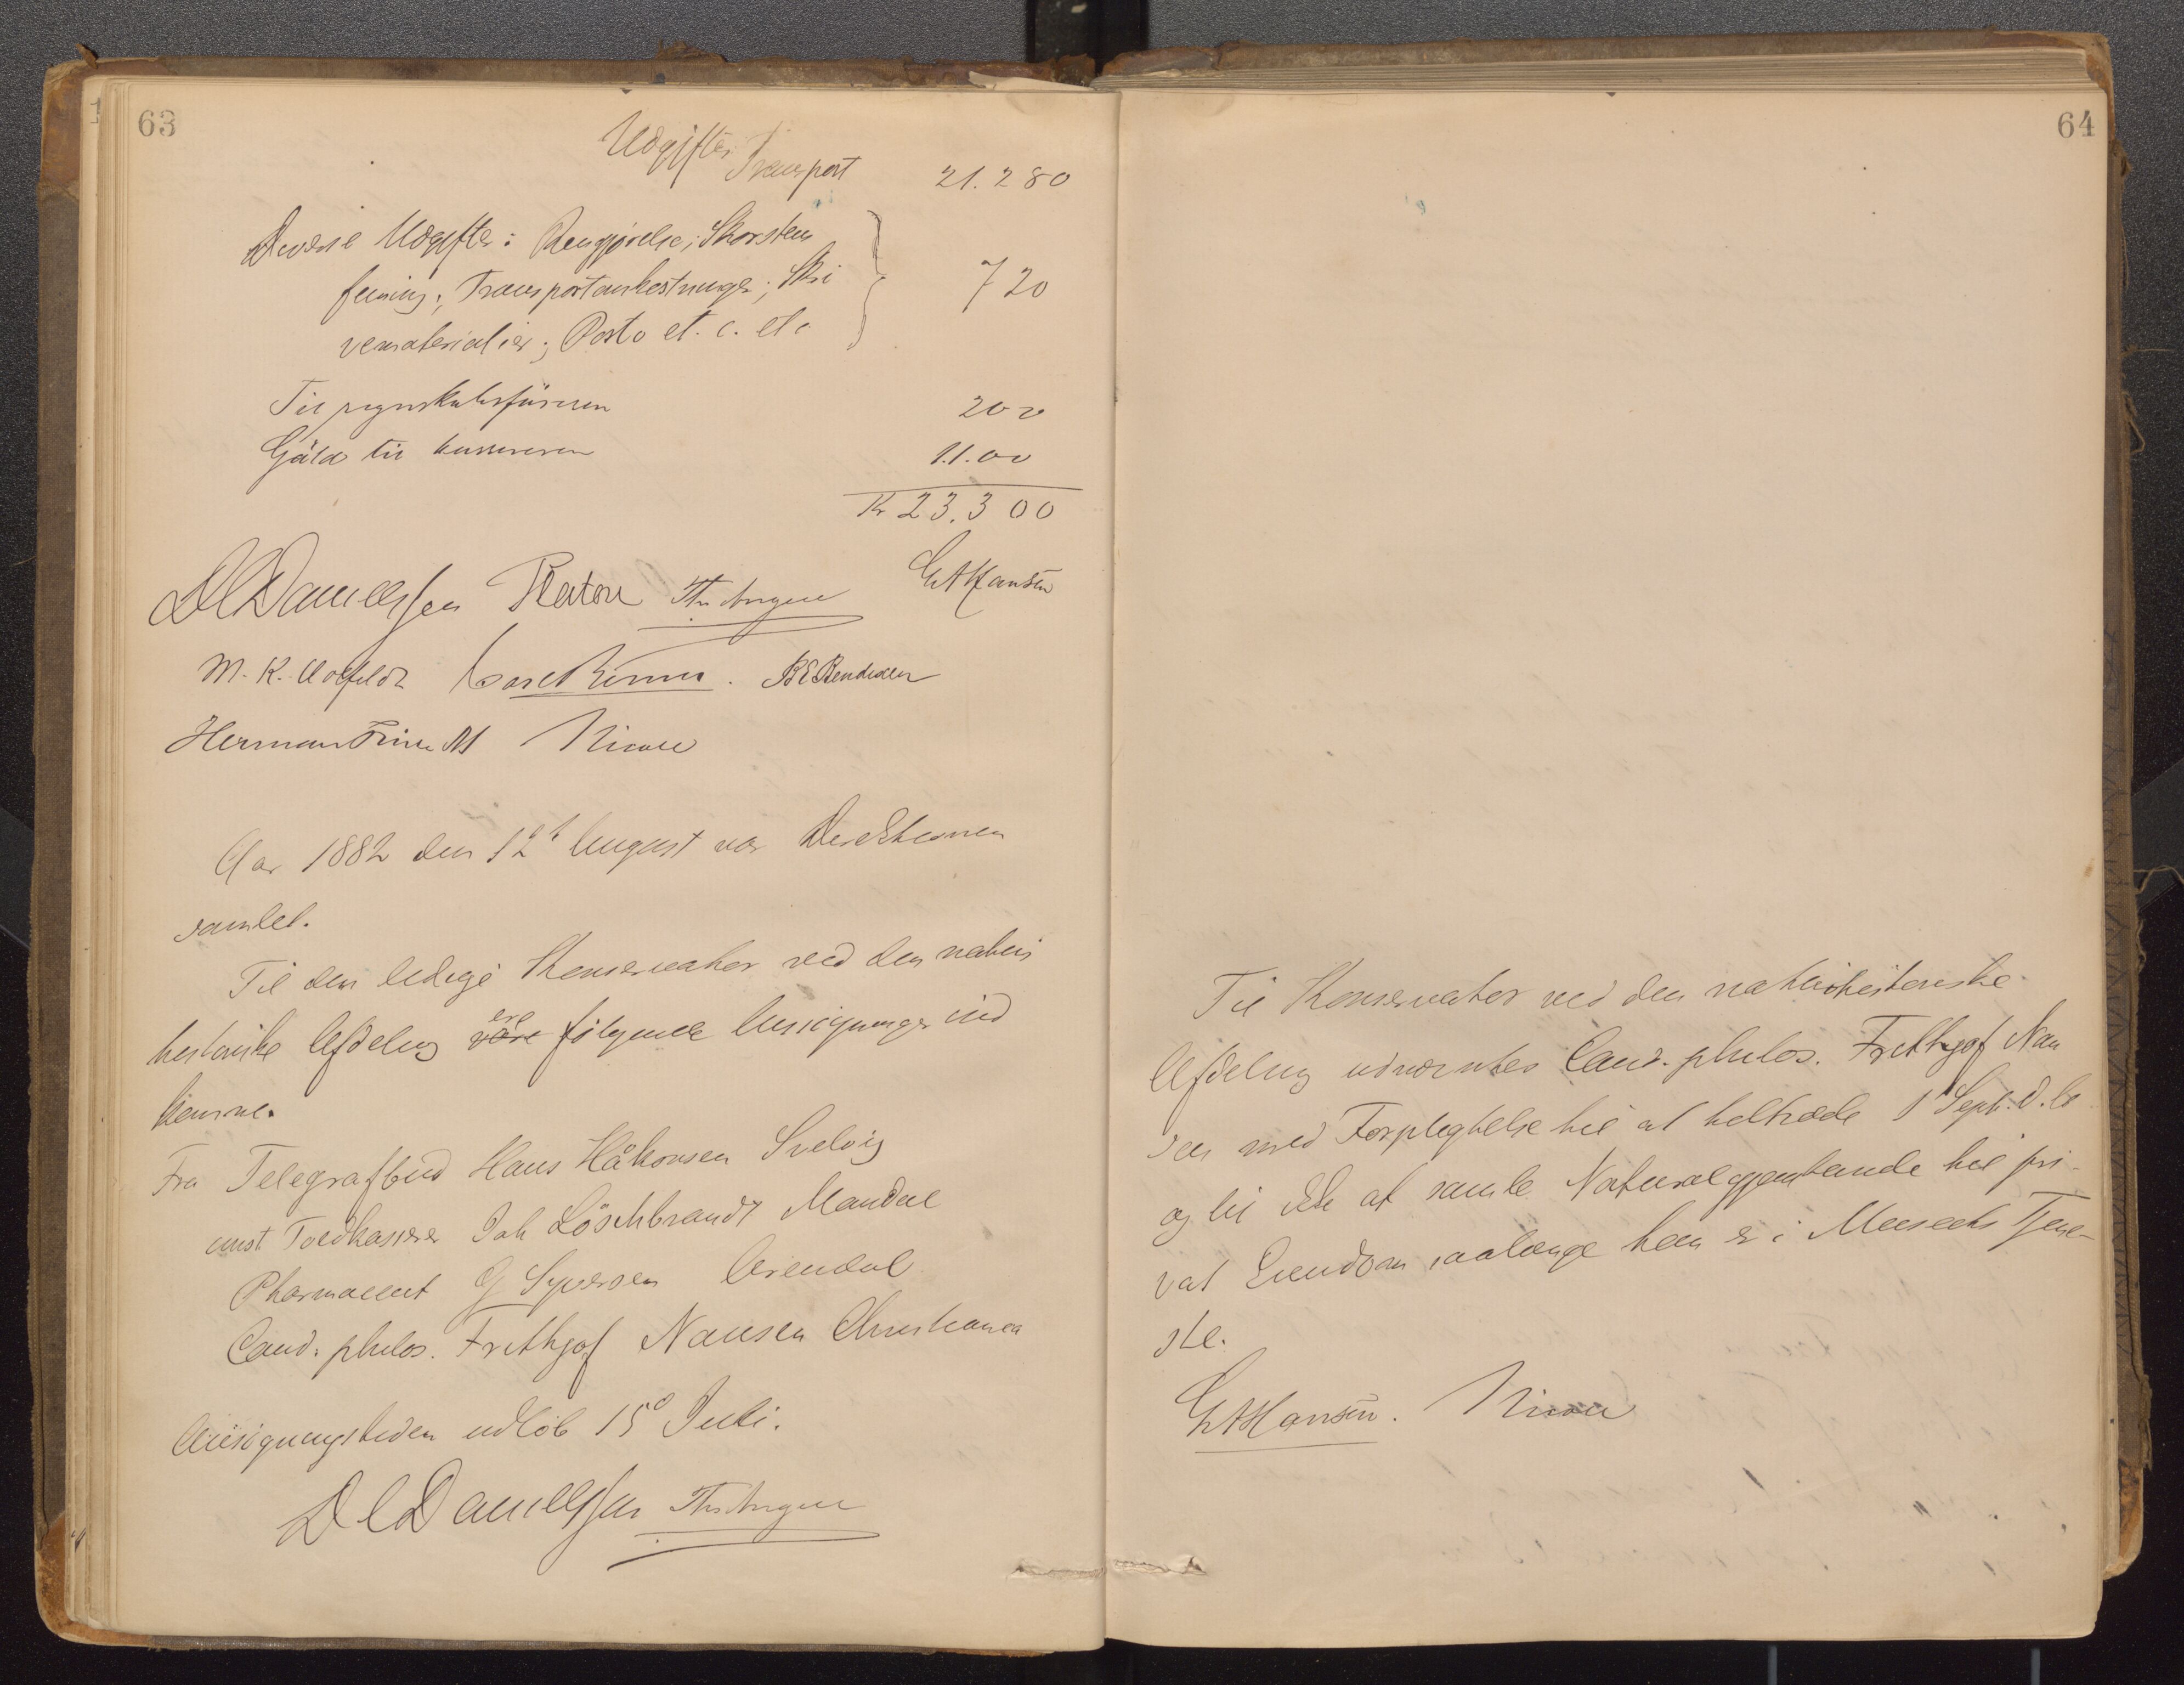 63
Udgifter
Transport 21.280
Diverse Udgifter: Rengjørelse; Skorstens
feining; Transportomkostninger; Skri
vematerialier; Porto et. c. etc 720
Til regnskabsføreren 200
Gäld til kassereren 1.1.00
Kr 23.300
DCDanielssen
GAHansen
BEBendixen
Herman Friele
Nicoll
Aar 1882 den 12t August var Direktionen
samlet.
Til den ledige Konservator ved den natur
historiske Afdeling vare ere følgende Ansögninger ind
komne.
Fra Telegrafbud Hans Håkonsen Svelvig
const Toldkasserer Joh Löschbrandt Mandal
Pharmaceut G Syversen Arendal
Cand. philos. Frithjof Nansen Christiania
Ansögningstiden udlöb 15d Juli.
DCDanielssen
64
Til Konservator ved den naturhistoriske
Afdeling udnævntes Cand. philos. Frithjof Nan
sen med Forpligtelse til at tiltræde 1 Sept. d. A
og til ikke at samle Naturalgjenstande til pri-
vat Eiendom saalænge han er i Museets Tjene-
ste.
GAHansen. Nicoll